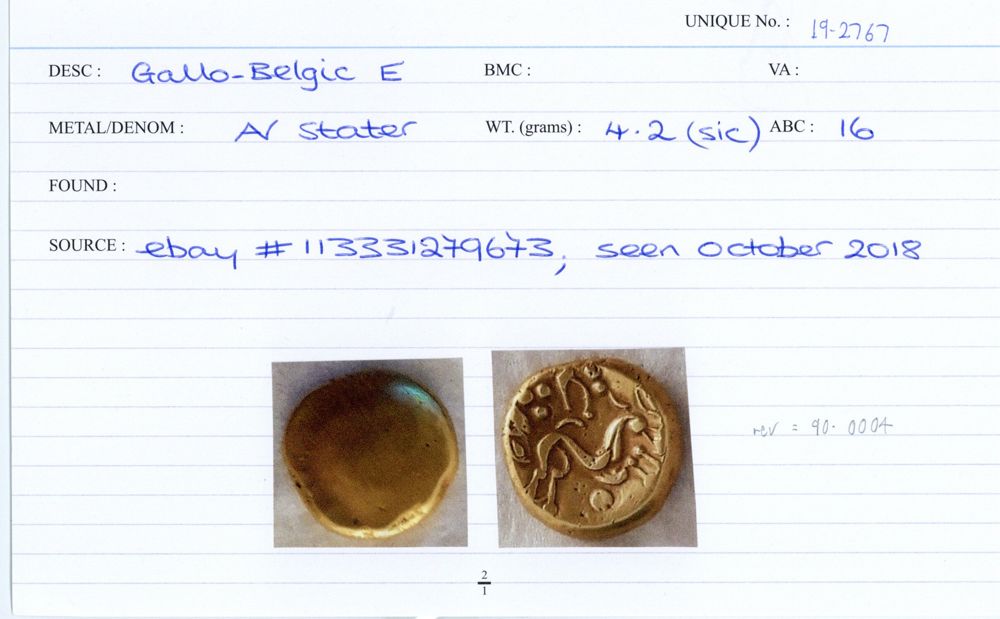 UNIQUE No. : 19-2767
DESC : Gallo-Belgic E BMC : VA :
METAL/DENOM : AV Stater WT. (grams) : 4.2 (sic) ABC : 16
FOUND :
SOURCE : ebay # 113331279673, seen October 2018
rev = 90.0004
2
1